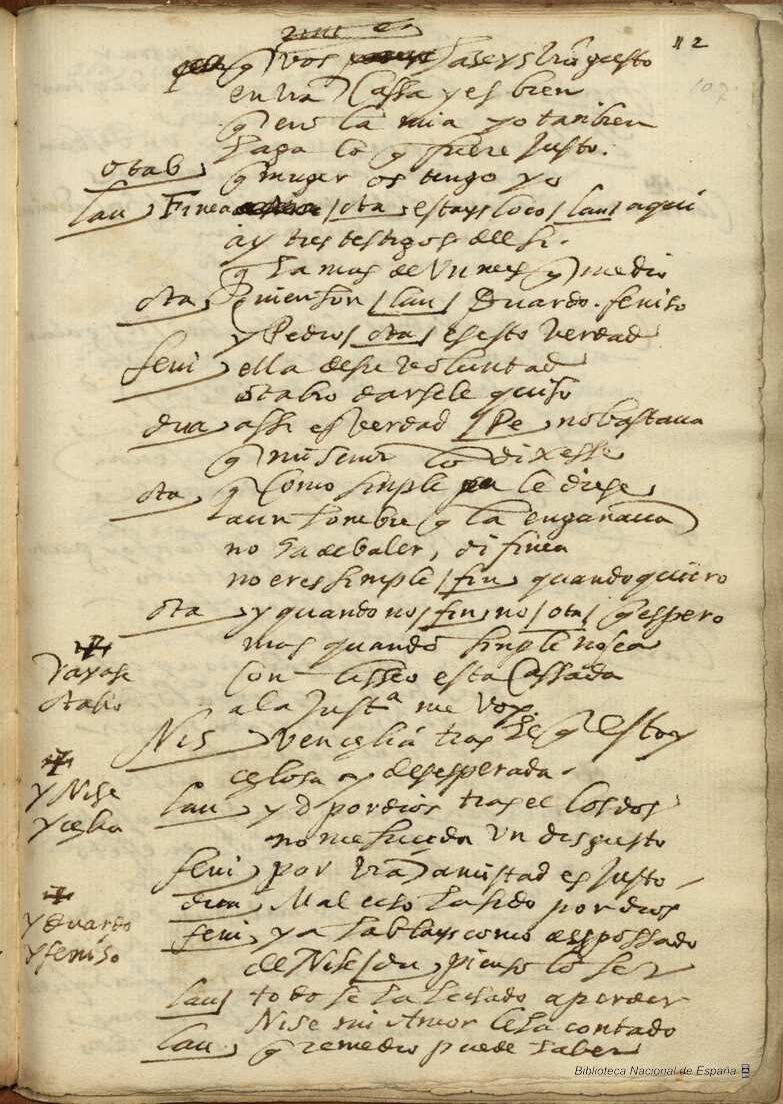 112
107
q vos haseys vro gusto
en vra Cassa y es bien
q en la mia yo tanbien
haga lo q fuere justo.
otab q muger os tengo yo
lau Finea / ota estays loco / lau aqui
ay tres testigos del si.
q ha mas de Un mes y medio
ota quien son / lau Duardo. feniso
y Pedro / ota es esto Verdad
feni ella de su voluntad
otabio darsele quiso
dua assi es Verdad / Pe no bastaua
q mi señor lo dixesse
ota q Como simple le diese
a un honbre q la engañaua
no ha de baler, di finea
no eres simple / fin quando quiero
ota y quando no / fin no / ota q espero
mas quando simple no sea
Con lisseo esta Cassada
a la Justa me voy.
Vayase
otabio
Nis ven çelia tras el q estoy
çelosa y desesperada.
y Nise
y çelia
lau yd por dios tras el los dos
no me suceda Un disgusto
feni por vra amistad es justo
dua Mal echo ha sido por dios
y duardo
y feniso
feni ya hablays como desposado
de Nise / du pienso lo ser
lau todo se ha hechado a perder
Nise mi Amor le ha contado
lau q remedio puede haber
Biblioteca Nacional de España